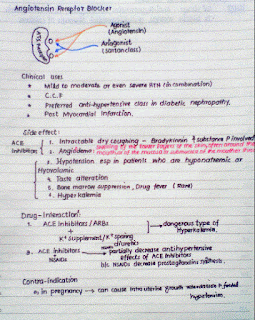 Angiotensin Receptor Blocker
Agonist
(Angiotensin)
Antagonist
(sartan class)
Clinical uses
* Mild to moderate or even severe HTN (in combination)
* C.C.F
* Preferred anti-hypertensive class in diabetic nephropathy.
* Post Myocardial Infarction.
Side effect:
ACE Inhibitors
1. Intractable dry coughing - Bradykinin & substance P involved
2. Angioedema:
3. Hypotension esp in patients who are hyponatremic or
Hypovolemic
4. Taste alteration
5. Bone marrow suppression, Drug fever (Rare)
6. Hyperkalemia
Drug-Interaction:
1. ACE Inhibitors / ARBs
+
K+ supplement / K+ sparing
diuretics
dangerous type of
Hyperkalemia.
2. ACE inhibitors
+
NSAIDs
NSAIDs partially decrease antihypertensive
effects of ACE Inhibitors
b/c NSAIDs decrease prostaglandins synthesis.
Contra-indication
in pregnancy → can cause intrauterine growth retardation & foetal
hypotension.